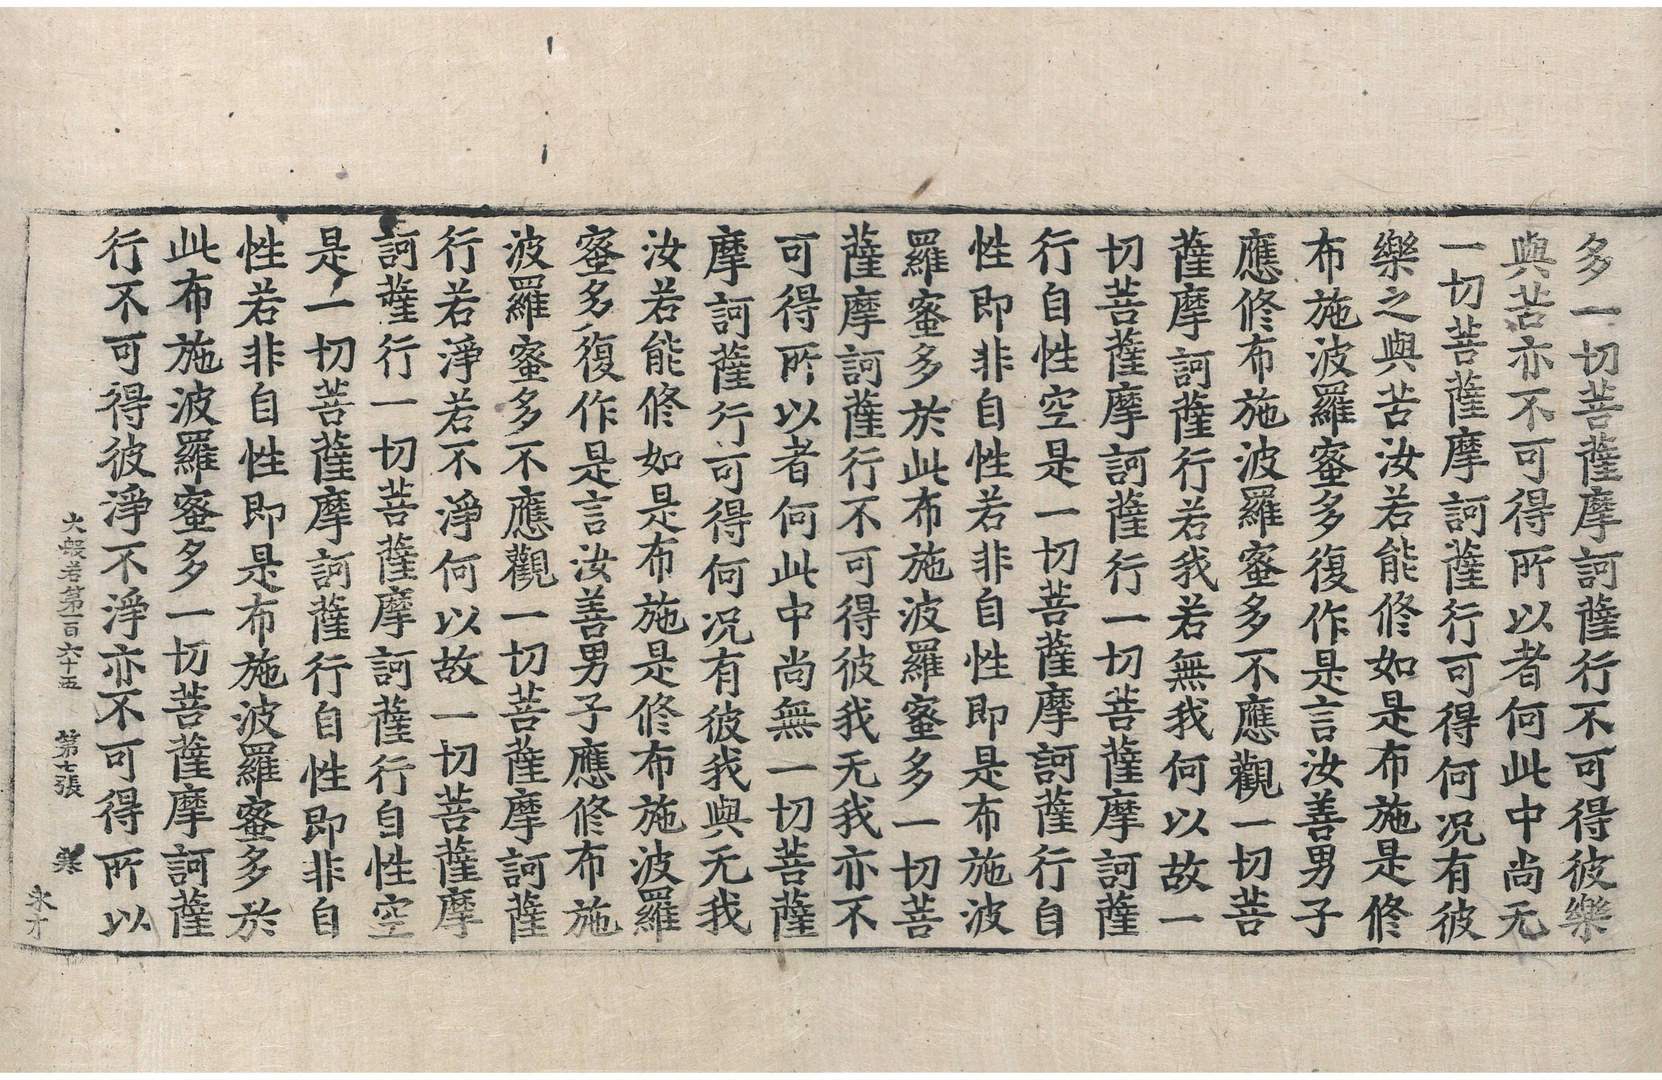 多一切菩薩摩訶薩行不可得彼樂
與苦亦不可得所以者何此中尚无
一切菩薩摩訶薩行可得何况有彼
樂之與苦汝若能修如是布施是修
布施波羅蜜多復作是言汝善男子
應修布施波羅蜜多不應觀一切菩
薩摩訶薩行若我若無我何以故一
切菩薩摩訶薩行一切菩薩摩訶薩
行自性空是一切菩薩摩訶薩行自
性即非自性若非自性即是布施波
羅蜜多於此布施波羅蜜多一切菩
薩摩訶薩行不可得彼我无我亦不
可得所以者何此中尚無一切菩薩
摩訶薩行可得何况有彼我與无我
汝若能修如是布施是修布施波羅
蜜多復作是言汝善男子應修布施
波羅蜜多不應觀一切菩薩摩訶薩
行若淨若不淨何以故一切菩薩摩
訶薩行一切菩薩摩訶薩行自性空
是一切菩薩摩訶薩行自性即非自
性若非自性即是布施波羅蜜多於
此布施波羅蜜多一切菩薩摩訶薩
行不可得彼淨不淨亦不可得所以
大般若第一百六十五 第七張 寒
永才